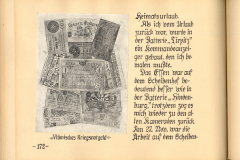 «Vlämisches Kriegsnotgeld»
- 172 -
Heimatsurlaub.
Als ich vom Urlaub
zurück war, wurde in
der Batterie „Tirpitz"
ein Kommandeanzei-
ger gebaut, den ich be-
malen mußte.
Das Essen war auf
dem Scheibenhof be-
deutend besser wie in
der Batterie „Hinden-
burg", trotzdem zog es
mich wieder zu den al-
ten Kameraden zurück.
Am 22. Nov. war die
Arbeit auf dem Scheiben-